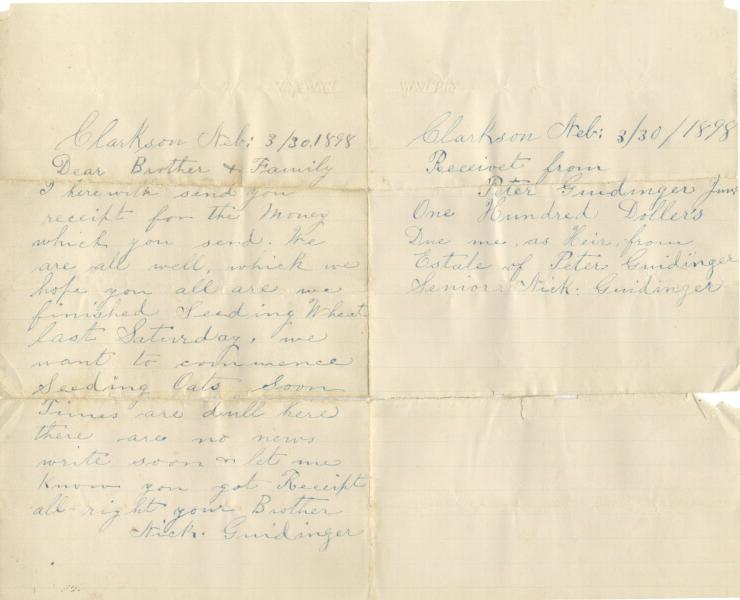 Clarkson Neb: 3/30.1898
Dear Brother & Family
I herewith send you
receipt for the Money
which you send. We
are all well, which we
hope you all are we
finished Seeding Wheat
last Saturday, we
want to commence
Seeding Oats Soon
Times are dull here
there are no news
write soon & let me
Know you got Receipt
all right your Brother
Nick. Guidinger
Clarkson Neb: 3/30/1898
Receivet from
Peter Guidinger Junr
One Hundred Dollers
Due me, as Heir, from
Estate of Peter Guidinger
Senior. Nick: Guidinger